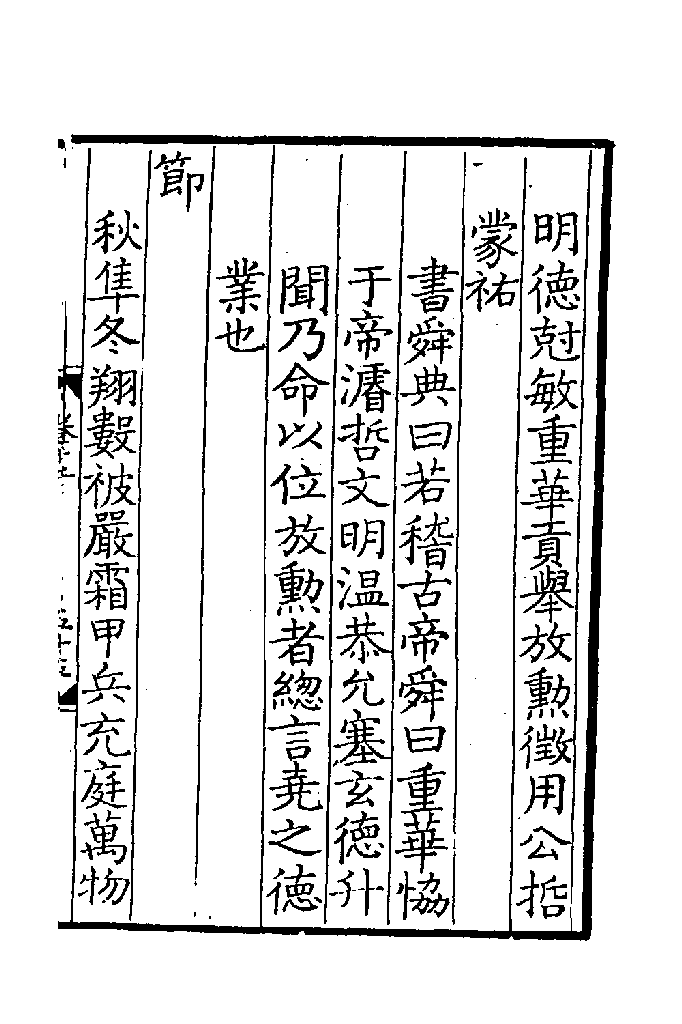 明徳尅敏重華貢舉放勲徴用公哲
蒙祐
書舜典曰若稽古帝舜曰重華恊
于帝濬哲文明温恭允塞玄徳升
聞乃命以位放勲者總言堯之徳
業也
節
秋隼冬翔數被嚴霜甲兵充庭萬物